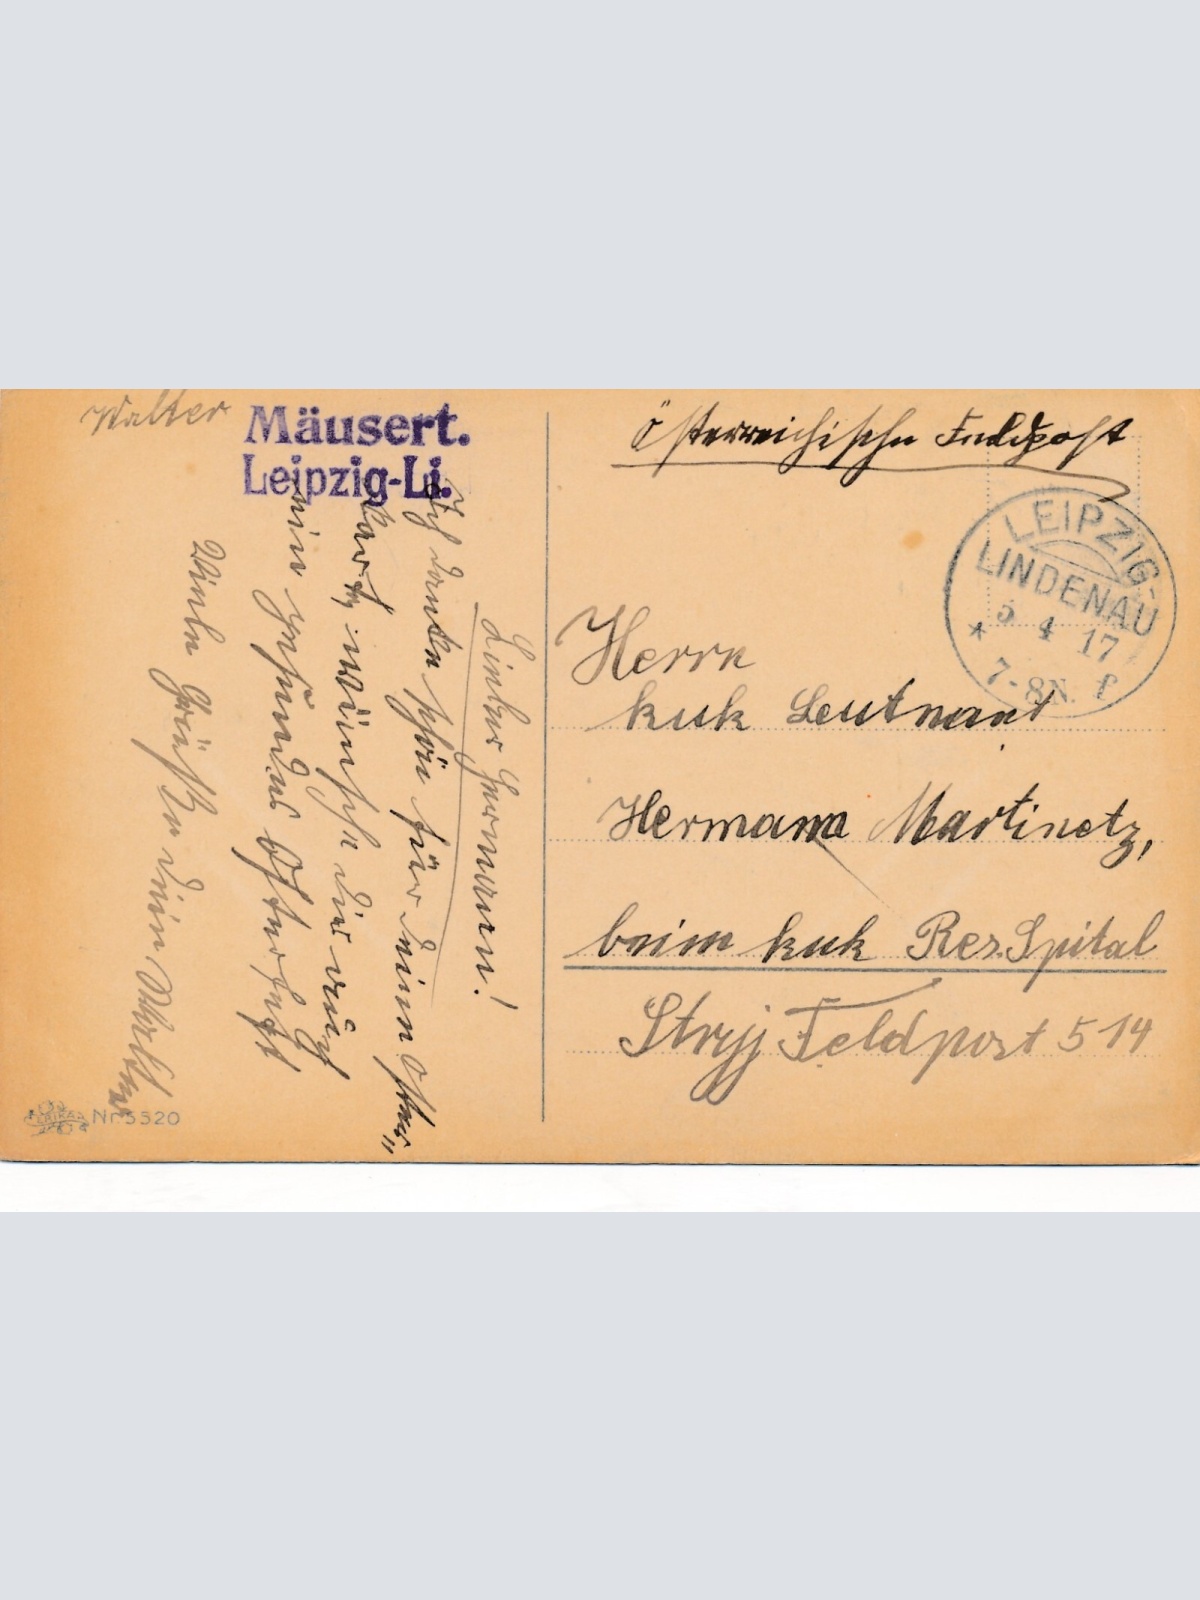 Walter
Mäusert.
Leipzig-Li.
Lieber Hermann!
Ich danke schön für deine Oster„
karte, wünsche dir auch
ein gesundes Osterfest
Viele Grüße dein Walter
Nr. 5320
Österreichische Feldpost
LEIPZIG-
LINDENAU
5 4 17
* 7-8N. f
Herrn
kuk Leutnant
Hermann Martinetz,
beim kuk Res. Spital
Stryj Feldpost 514